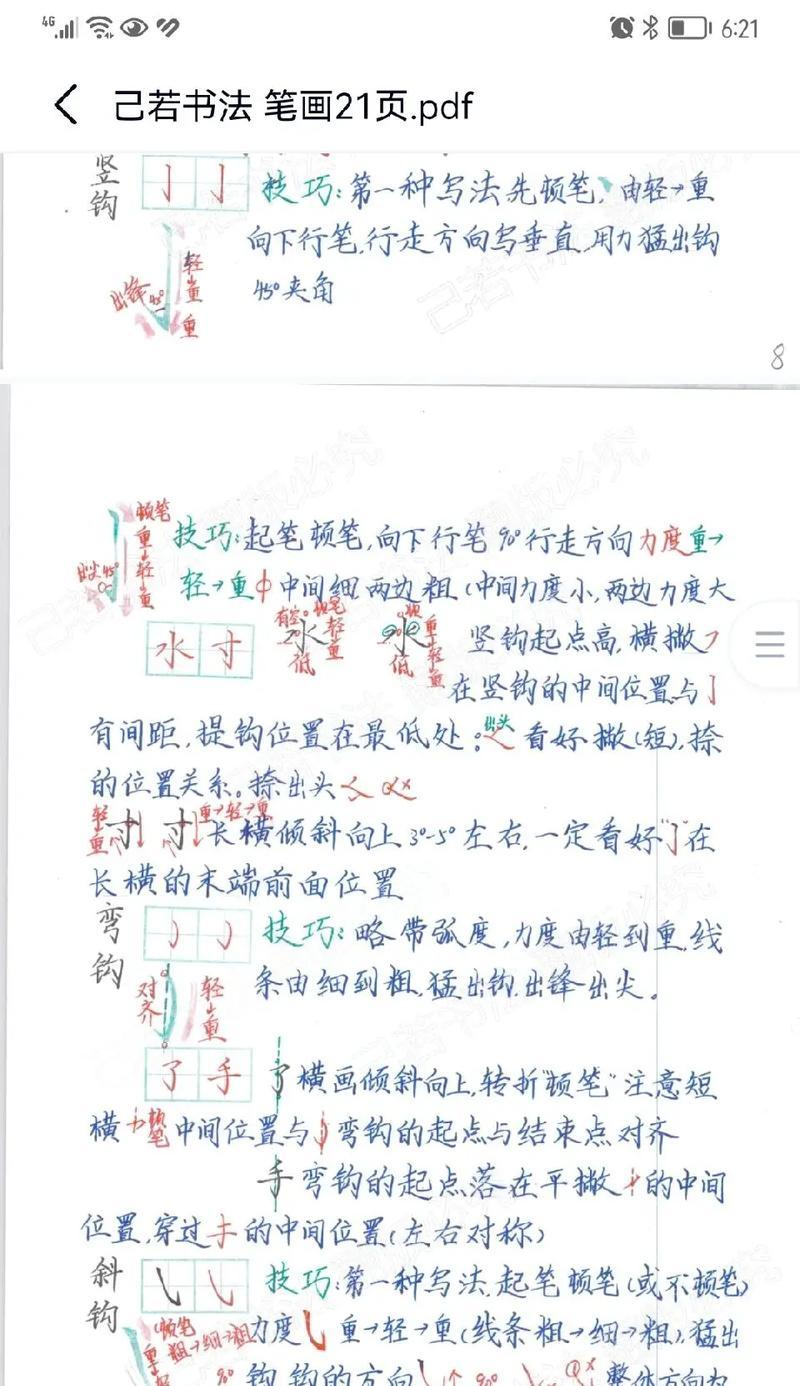 4G 6:21
己若书法 笔画21页.pdf
竖钩
技巧:第一种写法先顿笔,由轻→重
向下行笔,行走方向写垂直,用力猛出钩
45°夹角
出锋 45° 轻→重 重
8
顿笔 重→轻→重 45°
技巧:起笔顿笔,向下行笔90°行走方向力度重→
轻→重 中间细,两边粗(中间力度小,两边力度大
水 寸 低 轻→重 低 重→轻→重
竖钩起点高,横撇
在竖钩的中间位置与亅
有间距,提钩位置在最低处。出头 看好撇(短),捺
的位置关系。捺出头
轻→重 寸 寸 重→轻→重 长横倾斜向上3°-5°左右,一定看好"亅"在
长横的末端前面位置
弯钩
技巧:略带弧度,力度由轻到重,线
条由细到粗,猛出钩,出锋出尖。
对齐 轻→重
了 手 了横画倾斜向上,转折"顿笔"注意短
横 中间位置与 弯钩的起点与结束点对齐
手弯钩的起点落在平撇 的中间
位置,穿过 的中间位置(左右对称)
斜钩
技巧:第一种写法,起笔顿笔(或不顿笔)
顿笔 粗→细→粗
力度 重→轻→重(线条粗→细→粗),猛出
钩,钩的方向 90° ① 整体方向为